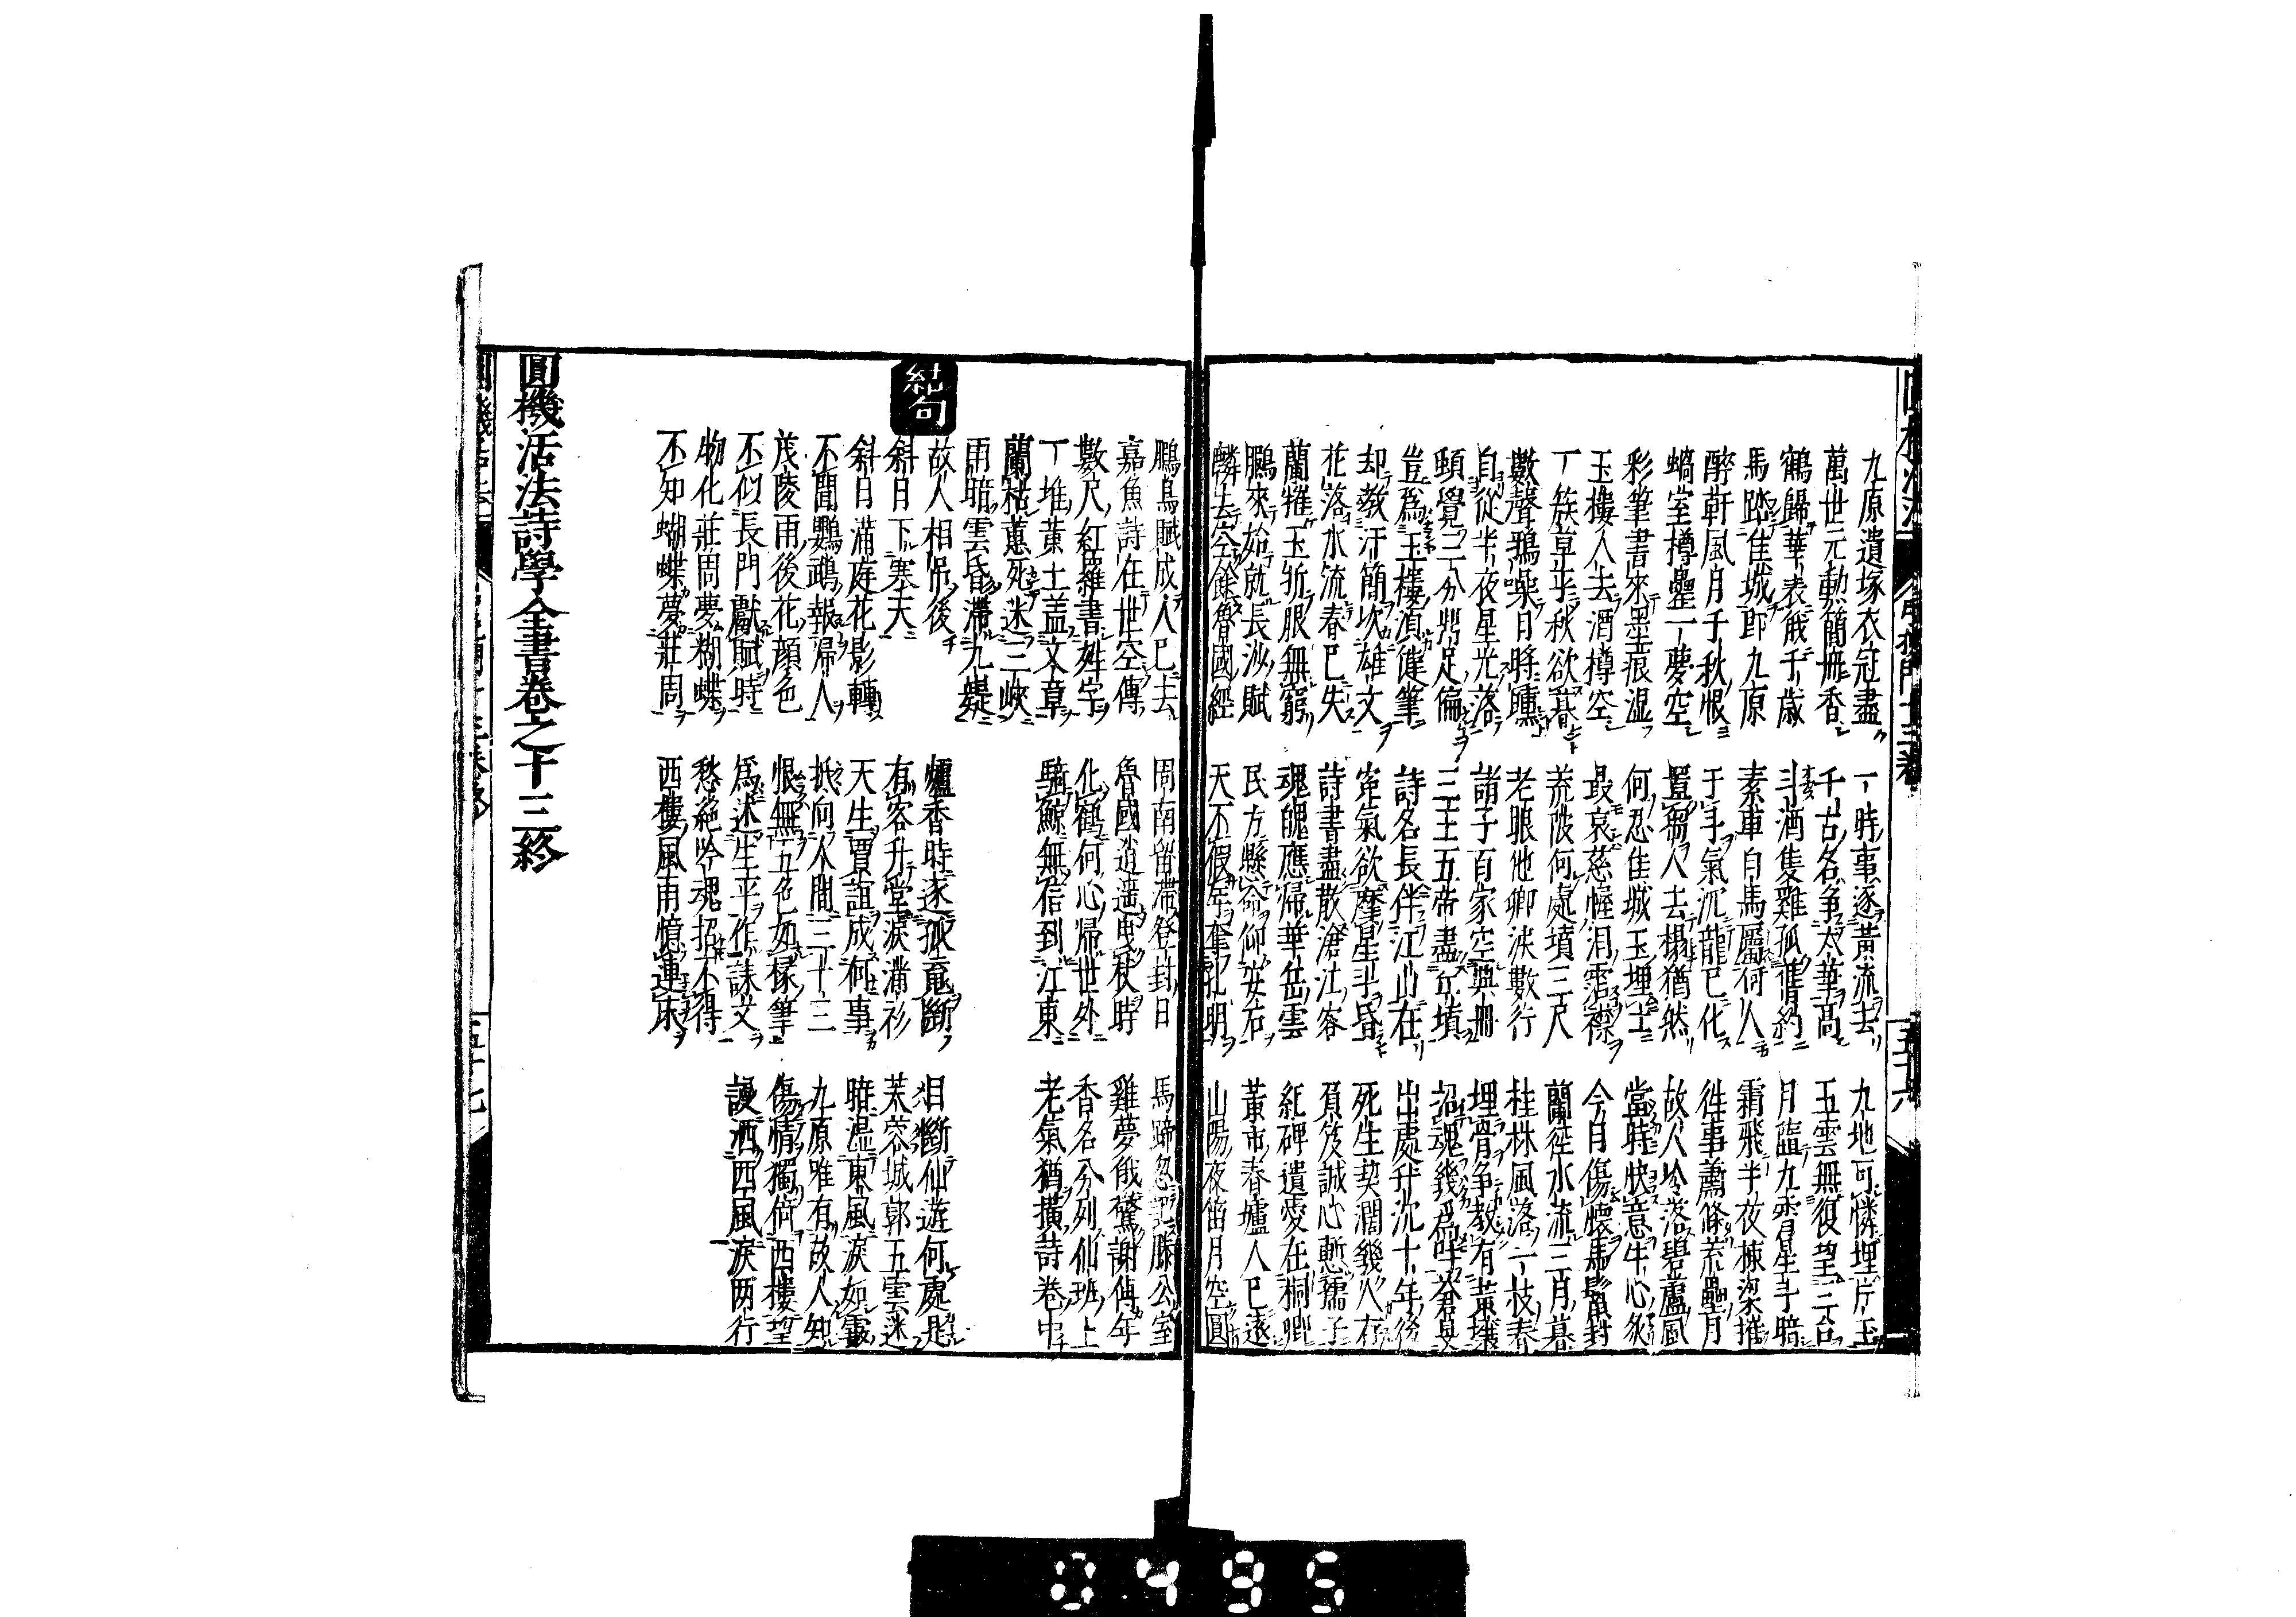 九原遺塚衣冠盡 一時事逐黃流去 九地可憐埋片玉
萬世元勳簡冊香 千古名爭太華高 五雲無復望三台
鶴歸華表俄千歲 斗酒隻雞孤舊約 月臨九 星斗暗
馬踏佳城即九原 素車白馬屬何人 霜飛半夜棟梁摧
醉軒風月千秋恨 于乎氣沉龍已化 徃事蕭條荒壘月
蝸室樽罍一夢空 置芻人去榻猶然 故人冷落碧蘆風
彩筆書來墨痕湿 何忍佳城玉埋土 當時快意牛心炙
玉樓人去酒樽空 最哀慈幄淚霑襟 今日傷懷馬鬣封
一族草乎秋欲暮 荒陂何處墳三尺 蘭徑水流三月暮
數聲鴉噪日將曛 老眼他鄉淚數行 桂林風落一枝春
自從半夜星光落 諸子百家空典冊 埋骨爭教有黃壤
頤覺三分鼎足偏 三王五帝盡丘墳 招魂幾爲叫蒼旻
豈爲玉樓湏健筆 詩名長伴江山在 出處升沉十年後
却教汗簡坎雄文 寃氣欲摩星斗昏 死生契濶幾人存
花落水流春已失 詩書盡散滄江客 負笈誠心慙孺子
蘭摧玉折恨無窮 魂魄應帰華岳雲 紅碑遺愛在桐鄉
鵬來始就長沙賦 民方懸命仰安石 黃市春壚人已遠
麟去空餘魯國經 天不假年奪孔明 山陽夜笛月空圓
鵬鳥賦成人已去 周南留滯登封日 馬蹄忽到滕公室
嘉魚詩在世空傳 魯國逍遥曳杖時 雞夢俄驚謝傅年
數尺紅羅書姓字 化鶴何心帰世外 香名分列仙班上
一堆黃土盖文章 騎鯨無信到江東 老氣猶橫詩卷中
蘭枯蕙死迷三峽
雨暗雲昏滯九嶷
結句
故人相吊後 爐香時逐孤䰟斷 目斷仙遊何處是
斜日下塞天 有客升堂淚滿衫 芙蓉城郭五雲迷
斜日滿庭花影轉 天生賈誼成何事 暗湿東風淚如霰
不聞鸚鵡報帰人 抵向人間三十三 九原唯有故人知
茂陵雨後花顏色 恨無五色如椽筆 傷情獨倚西樓望
不似長門獻賦時 爲述生平作誄文 謾洒西風淚两行
物化莊周夢蝴蝶 愁絕吟魂招不得
不知蝴蝶夢莊周 西樓風雨憶連床
圓機活法詩學全書卷之十三終
五十七
0495